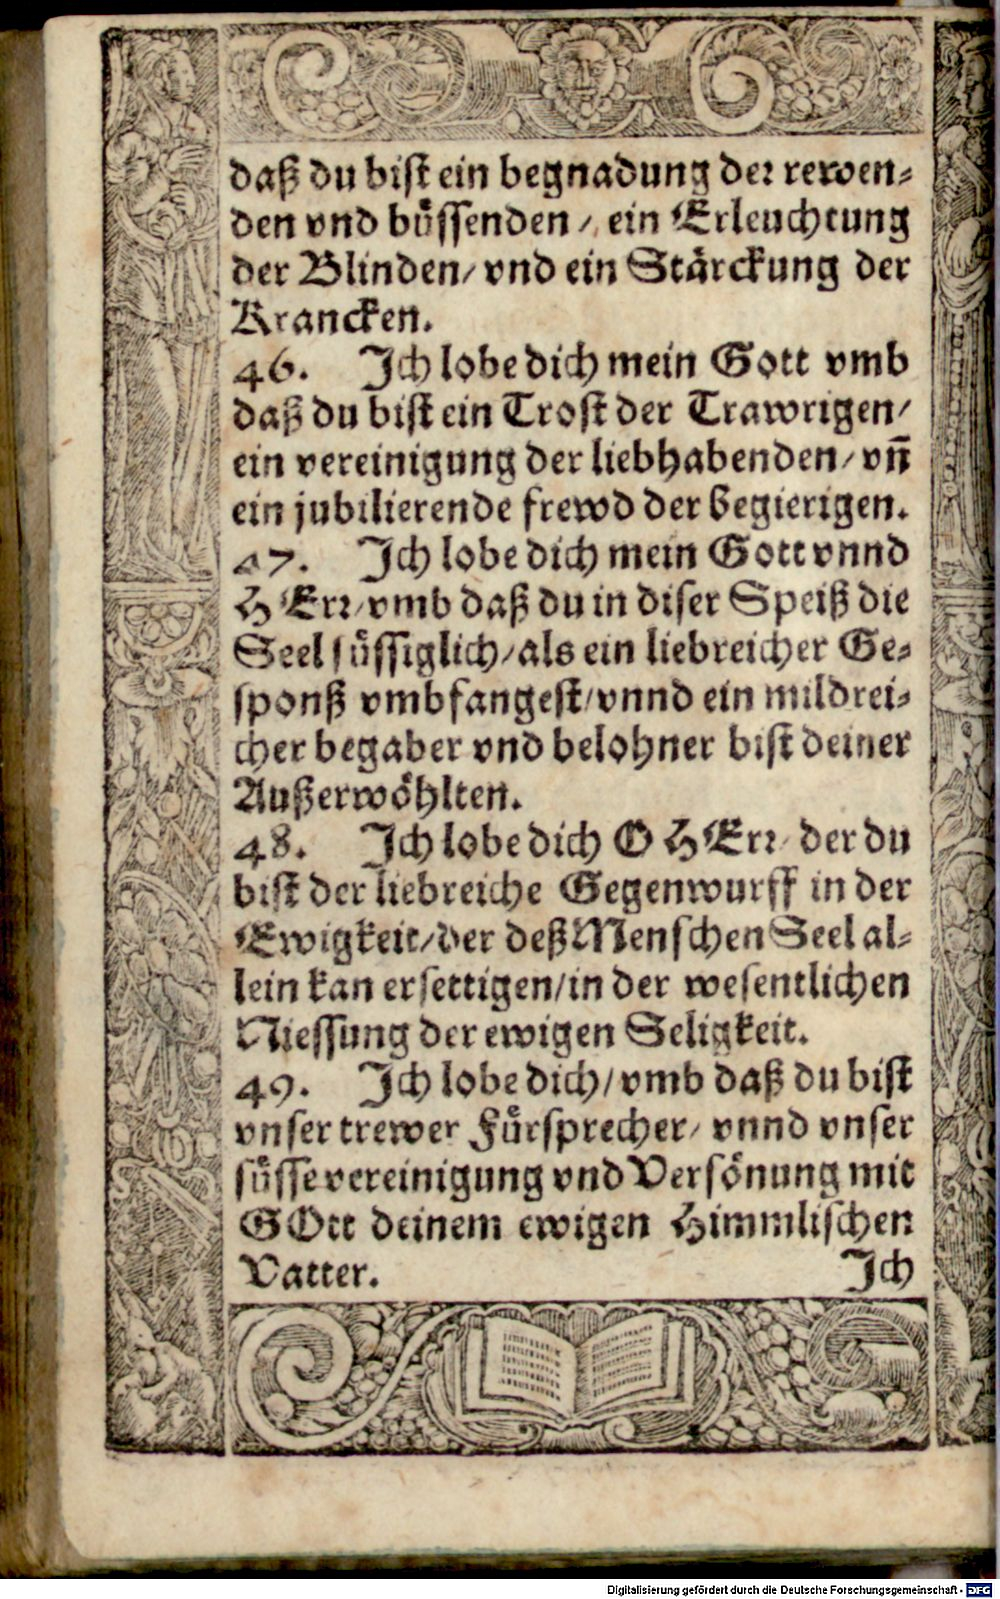 daß du bist ein begnadung der rewen⸗
den vnd büssenden / ein Erleuchtung
der Blinden / vnd ein Stärckung der
Krancken.
46. Ich lobe dich mein Gott vmb
daß du bist ein Trost der Trawrigen /
ein vereinigung der liebhabenden / vn̄
ein jubilierende frewd der begierigen.
47. Ich lobe dich mein Gott vnnd
HErr / vmb daß du in diser Speiß die
Seel süssiglich / als ein liebreicher Ge⸗
sponß vmbfangest / vnnd ein mildrei⸗
cher begaber vnd belohner bist deiner
Außerwöhlten.
48. Ich lobe dich O HErr / der du
bist der liebreiche Gegenwurff in der
Ewigkeit / der deß Menschen Seel al⸗
lein kan ersettigen / in der wesentlichen
Niessung der ewigen Seligkeit.
49. Ich lobe dich / vmb daß du bist
vnser trewer Fürsprecher / vnnd vnser
süsse vereinigung vnd Versönung mit
GOtt deinem ewigen Himmlischen
Vatter. Ich
Digitalisierung gefördert durch die Deutsche Forschungsgemeinschaft - DFG